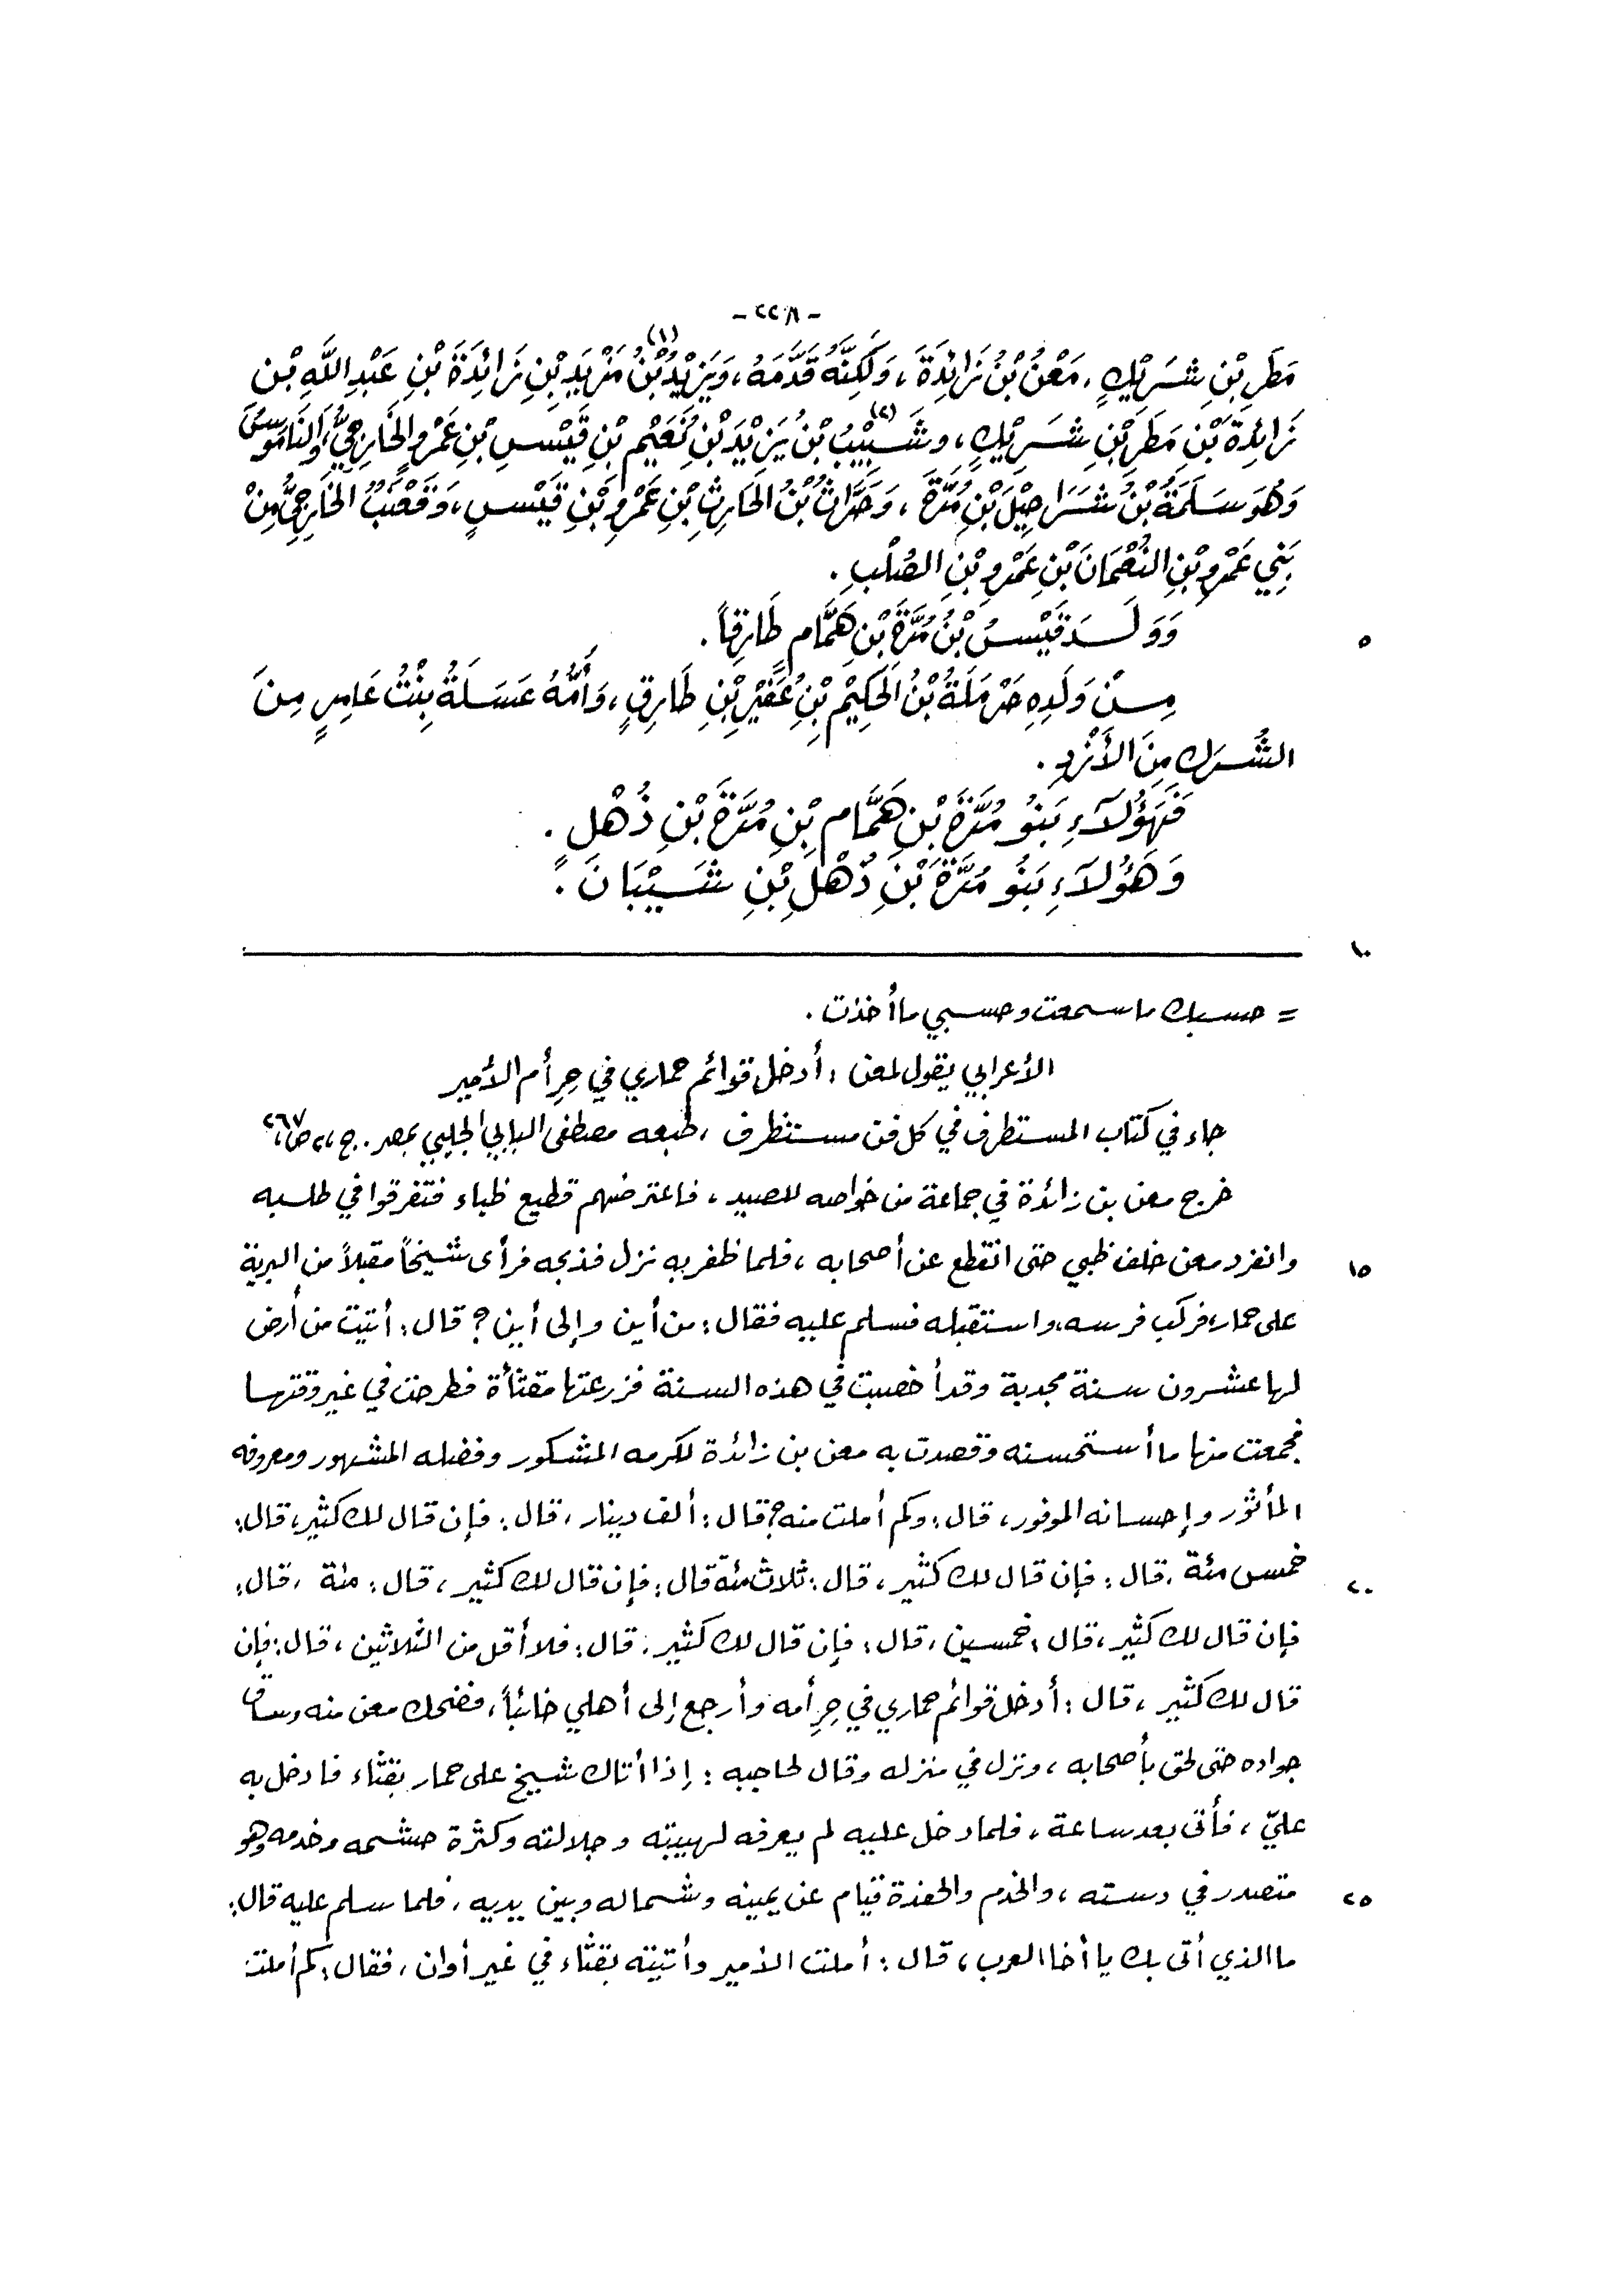 - ٢٢٨ -
مَطَرِ بْنِ شَرِيْكٍ، مَعْنُ بْنُ زَائِدَةَ، وَلَكِنَّهُ قَدَّمَهُ، وَيَزِيْدُ بْنُ مَزْيَدِ بْنِ زَائِدَةَ بْنِ عَبْدِ اللَّهِ بْنِ (١)
زَائِدَةَ بْنِ مَطَرِ بْنِ شَرِيْكٍ، وشَبِيْبُ بْنُ يَزِيْدَ بْنِ نُعَيْمِ بْنِ قَيْسِ بْنِ عَمْرٍو الخَارِجِيُّ، (٢)
وَهُوَ سَلَمَةُ بْنُ شَرَاحِيْلَ بْنِ مُرَّةَ، وَحَرَّاثُ بْنُ الحَارِثِ بْنِ عَمْرِو بْنِ قَيْسٍ، وَقَعْنَبُ الخَارِجِيُّ مِنْ
بَنِي عَمْرِو بْنِ النُّعْمَانَ بْنِ عَمْرِو بْنِ الصُّلْبِ.
وَوَلَدَ قَيْسُ بْنُ مُرَّةَ بْنِ هَمَّامٍ طَارِقاً. ٥
مِنْ وَلَدِهِ حَرْمَلَةُ بْنُ الحَكِيْمِ بْنِ عُفَيْرِ بْنِ طَارِقٍ، وَأُمُّهُ عَسَلَةُ بِنْتُ عَامِرٍ مِنَ
الشُّرَكِ مِنَ الأَزْدِ.
فَهَؤُلَآءِ بَنُو مُرَّةَ بْنِ هَمَّامِ بْنِ مُرَّةَ بْنِ ذُهْلٍ.
وَهَؤُلَآءِ بَنُو مُرَّةَ بْنِ ذُهْلِ بْنِ شَيْبَانَ.
١٠
= حسبك ما سمعت وحسبي ما أخذت.
الأعرابي يقول لمعن: أدخل قوائم حماري في حِرِ أم الأمير
جاء في كتاب المستطرف في كل فن مستظرف، طبعه مصطفى البابي الحلبي بمصر. ج، ٢، ص، ٢٦٧
خرج معن بن زائدة في جماعة من خواصه للصيد، فاعترضهم قطيع ظباء فتفرقوا في طلبه
وانفرد معن خلف ظبي حتى انقطع عن أصحابه، فلما ظفر به نزل فذبحه فرأى شيخاً مقبلاً من البرية ١٥
على حمار، فركب فرسه، واستقبله فسلم عليه فقال: من أين وإلى أين؟ قال: أتيت من أرض
لها عشرون سنة مجدبة وقد أخصبت في هذه السنة فزرعتها مقثأة فطرحت في غير وقتها
فجمعت منها ما أستحسنه وقصدت به معن بن زائدة لكرمه المشكور وفضله المشهور ومعروفه
المأثور وإحسانه الموفور، قال: وكم أملت منه؟ قال: ألف دينار، قال: فإن قال لك كثير، قال:
خمس مئة، قال: فإن قال لك كثير، قال: ثلاث مئة قال: فإن قال لك كثير، قال: مئة، قال: ٢٠
فإن قال لك كثير، قال: خمسين، قال: فإن قال لك كثير. قال: فلا أقل من الثلاثين، قال: فإن
قال لك كثير، قال: أدخل قوائم حماري في حِرِ أمه وأرجع إلى أهلي خائباً، فضحك معن منه وساق
جواده حتى لحق بأصحابه، ونزل في منزله وقال لحاجبه: إذا أتاك شيخ على حمار بقثاء فادخل به
عليّ، فأتى بعد ساعة، فلما دخل عليه لم يعرفه لهيبته وجلالته وكثرة حشمه وخدمه وهو
متصدر في دسته، والخدم والحفدة قيام عن يمينه وشماله وبين يديه، فلما سلم عليه قال: ٢٥
ما الذي أتى بك يا أخا العرب، قال: أملت الأمير وأتيته بقثاء في غير أوان، فقال: كم أملت